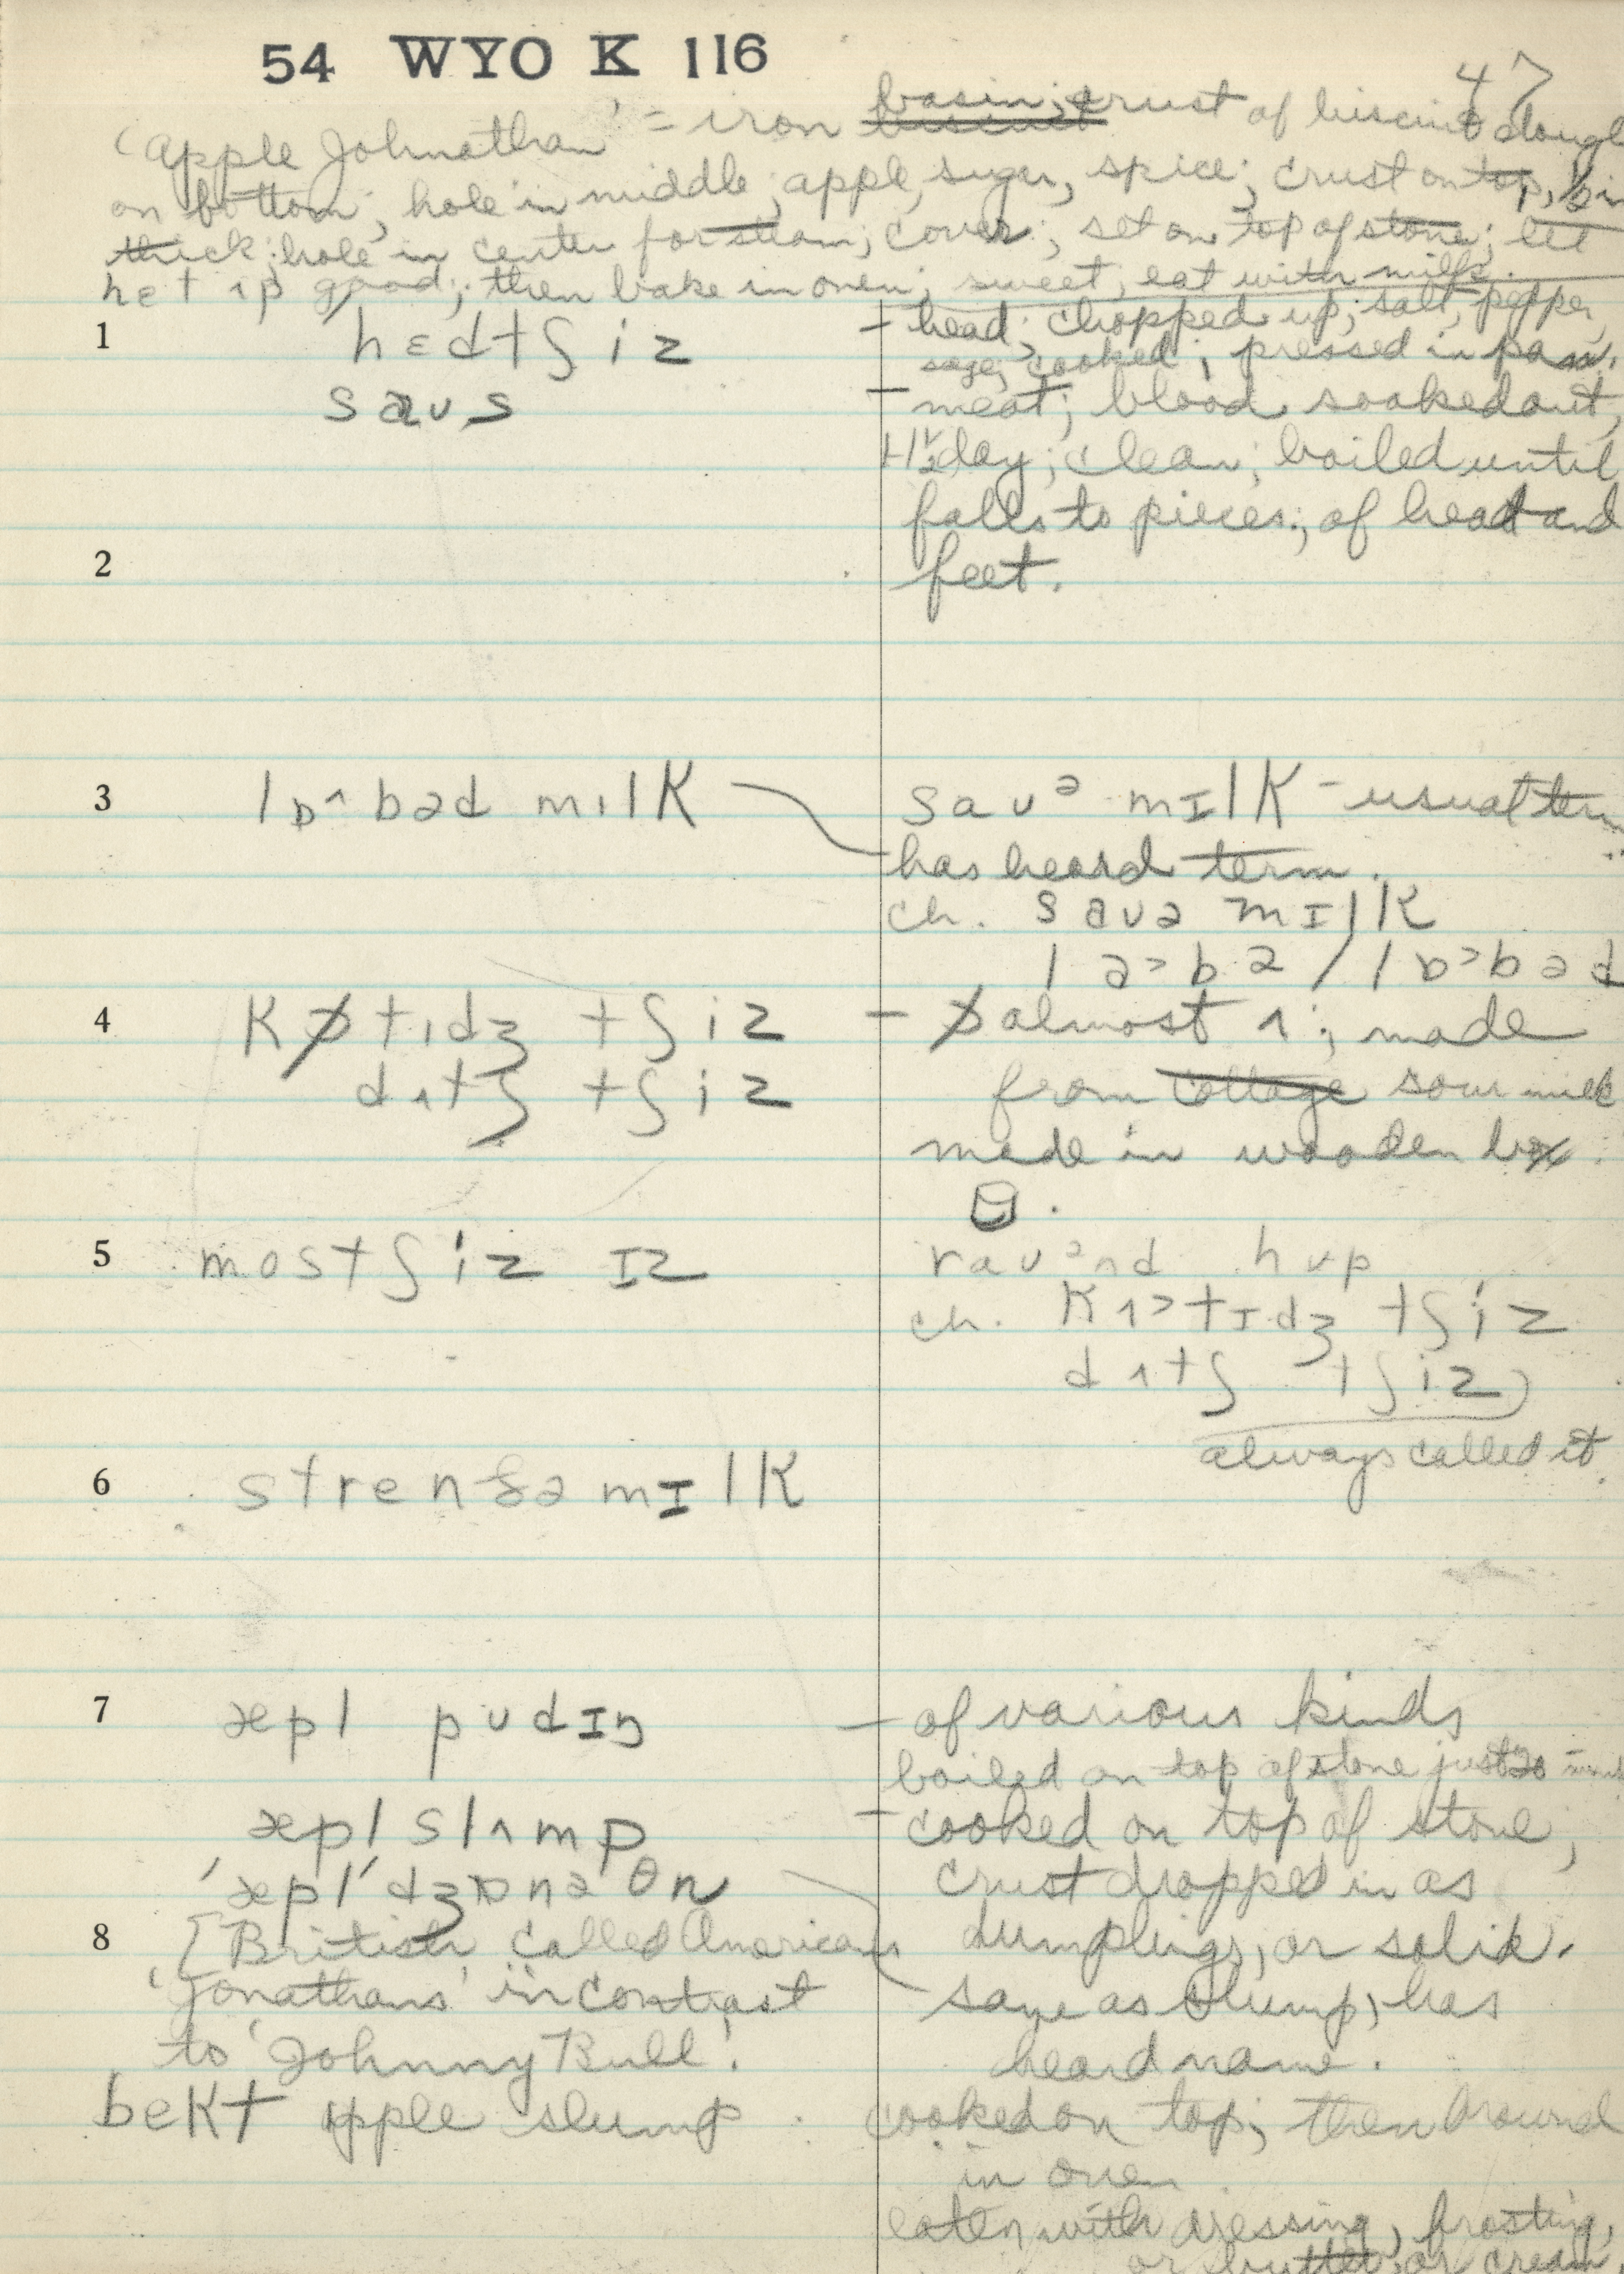 54 WYO K 116
47
'Apple Johnathan' = iron basin; crust of biscuit dough
on bottom; hole in middle; apple, sugar, spice; crust on top,
thick; hole in center for steam; cover; set on top of stove; let
het ʌp good; then bake in oven; sweet, eat with milk.
1 hɛdtʃiz – head; chopped up; salt, pepper,
sage; cooked; pressed in pan.
saus – meat; blood soaked out,
1-1½ day; clean; boiled until
falls to pieces; of head and
2 feet.
3 lɒ^bəd mɪlK sauᵊ mɪlK – usual term
has heard term.
ch. sauə mɪlK
la>bə / lɒ>bəd
4 Kɒ̸tɪdʒ tʃiz – ɒ̸ almost ʌ; made
dʌtʃ tʃiz from cottage sour milk
made in wooden box.
5 mostʃiz ɪz rauᵊnd hup
ch. Kʌ>tɪdʒ tʃiz
dʌtʃ tʃiz)
always called it
6 strenðə mɪlK
7 æpl pudɪŋ – of various kinds
boiled on top of stove just 20
æpl slʌmp – cooked on top of stove,
'æpl'dʒɒnəθn crust dropped in as
8 [British called Americans dumplings, or solid.
'Jonathans' in contrast same as slump, has
to 'Johnny Bull'. heard name.
bekt apple slump cooked on top; then browned
in oven
eaten with dressing, frosting,
or butter, or cream.